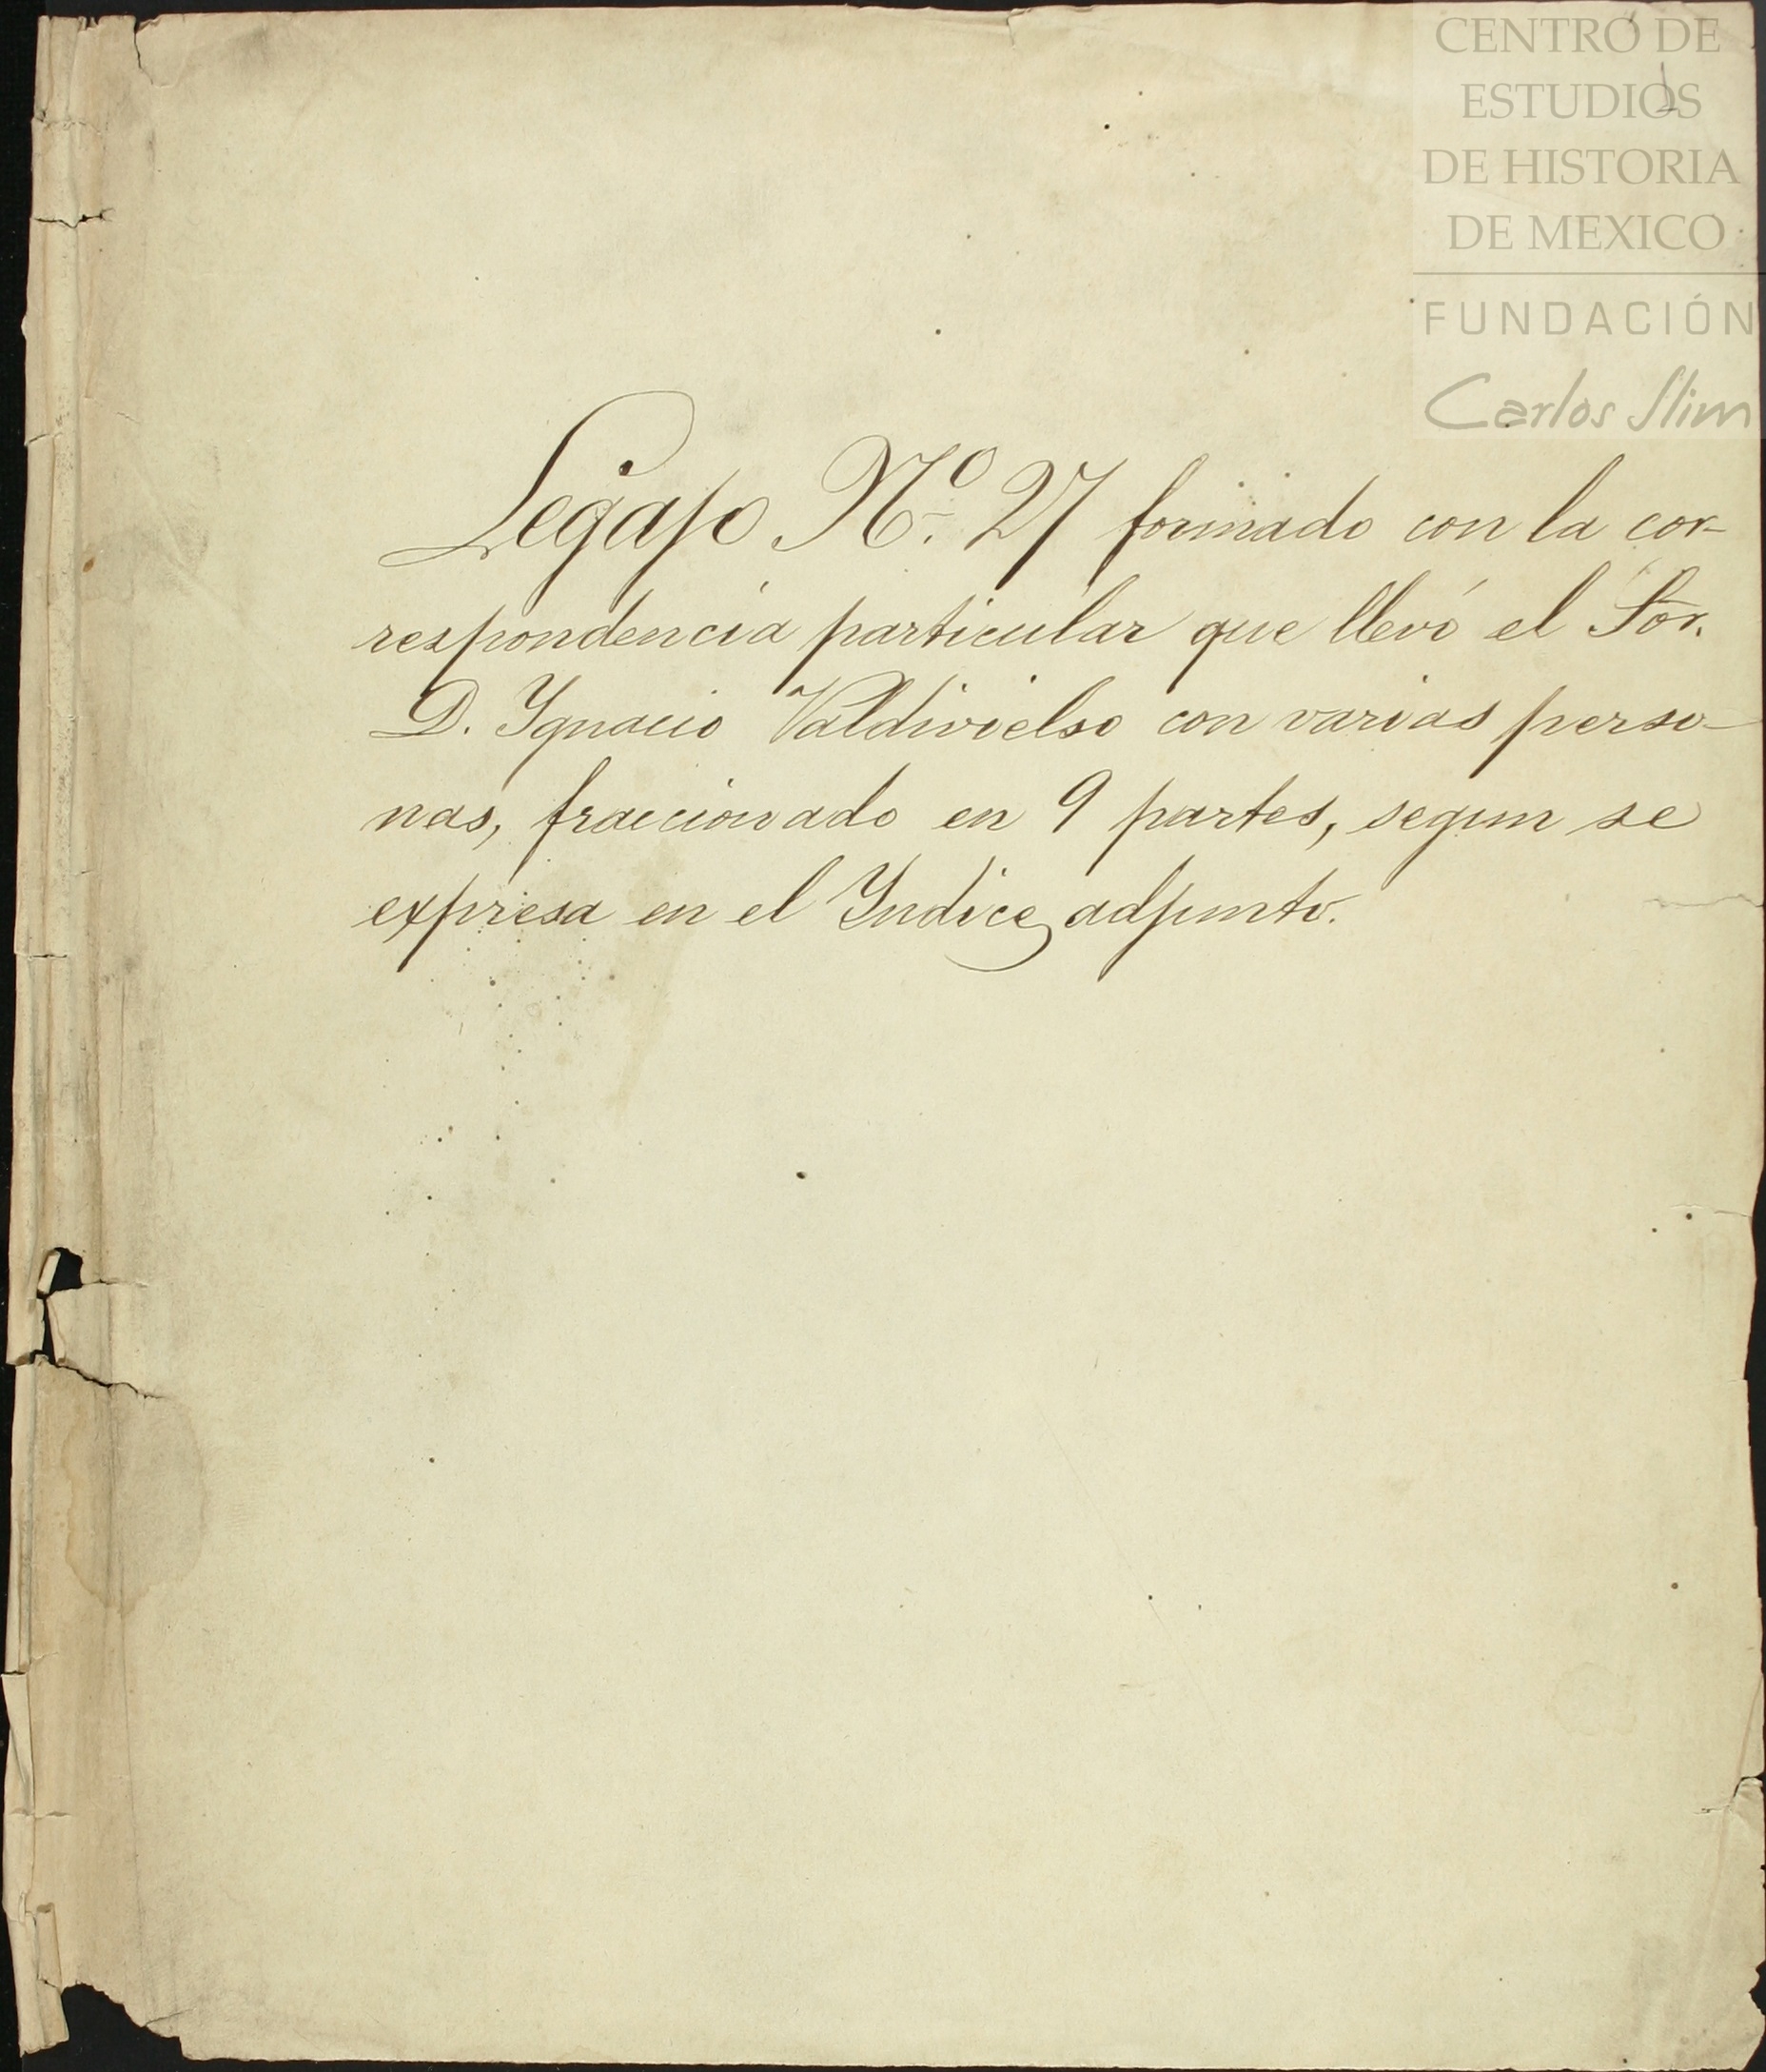 CENTRO DE
ESTUDIOS
DE HISTORIA
DE MEXICO
FUNDACIÓN
Carlos Slim
1
Legajo Nº. 27 formado con la cor-
respondencia particular que llevó el Sor.
D. Ygnacio Valdivielso con varias perso-
nas, fraccionado en 9 partes, segun se
expresa en el Yndice adjunto.